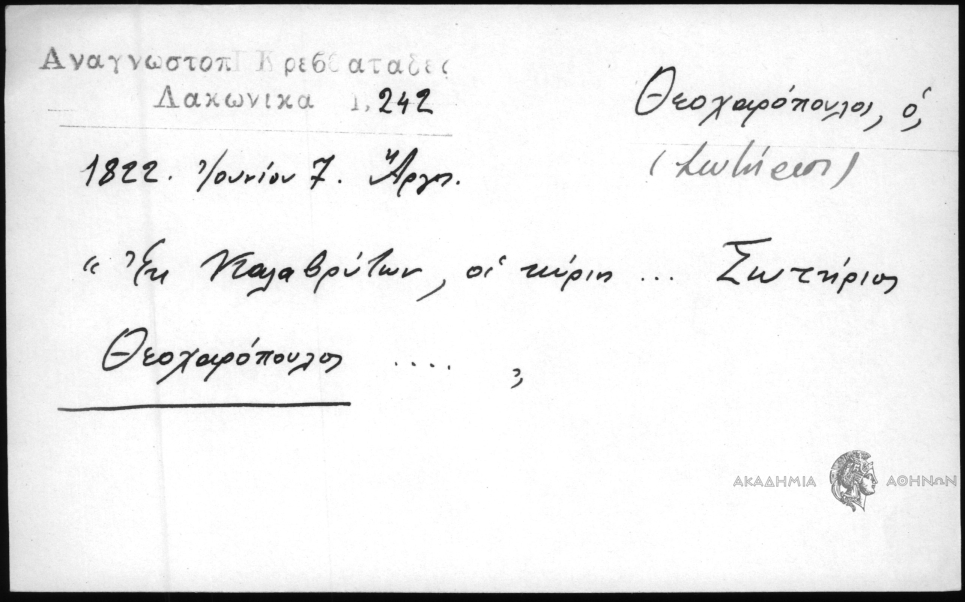 Αναγνωστοπ Κρεββαταδες
Λακωνικα 1, 242
Θεοχαρόπουλος, ὁ,
(Σωτήριος)
1822. Ἰουνίου 7. Ἄργος.
" Ἐκ Καλαβρύτων, οἱ κύριοι ... Σωτήριος
Θεοχαρόπουλος .... "
ΑΚΑΔΗΜΙΑ ΑΘΗΝΩΝ